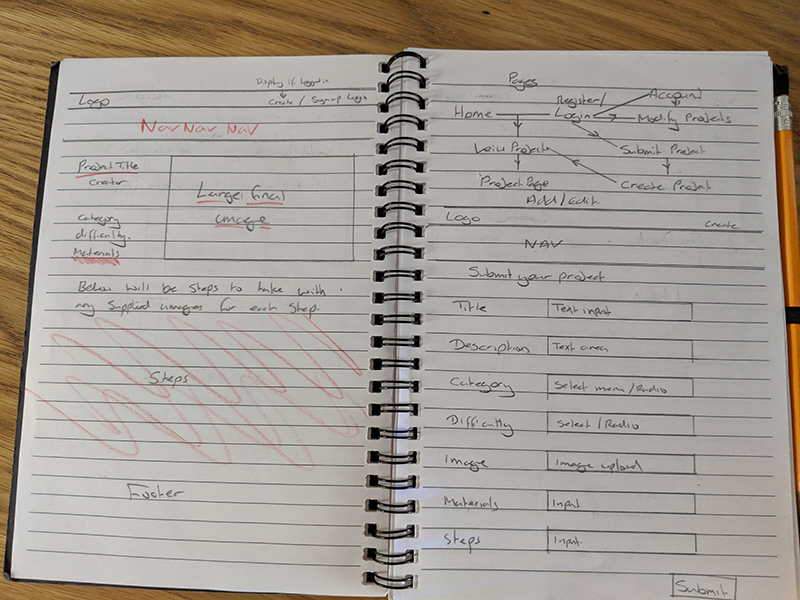 Display if logged in
Logo
Create / Signup Login
Nav Nav Nav
Project Title
Creator
Large final
image
Category
difficulty.
Materials
Below will be steps to take with
any supplied images for each step.
Steps
Footer
Pages
Register/
Account
Home
Login
Modify Projects
View Projects
Submit Project
Project Page
Create Project
Add/edit.
Logo
create
NAV
Submit your project
Title
Text input
Description
Text area
Category
Select menu/Radio
Difficulty
Select/Radio
Image
Image upload
Materials
Input
Steps
Input.
Submit